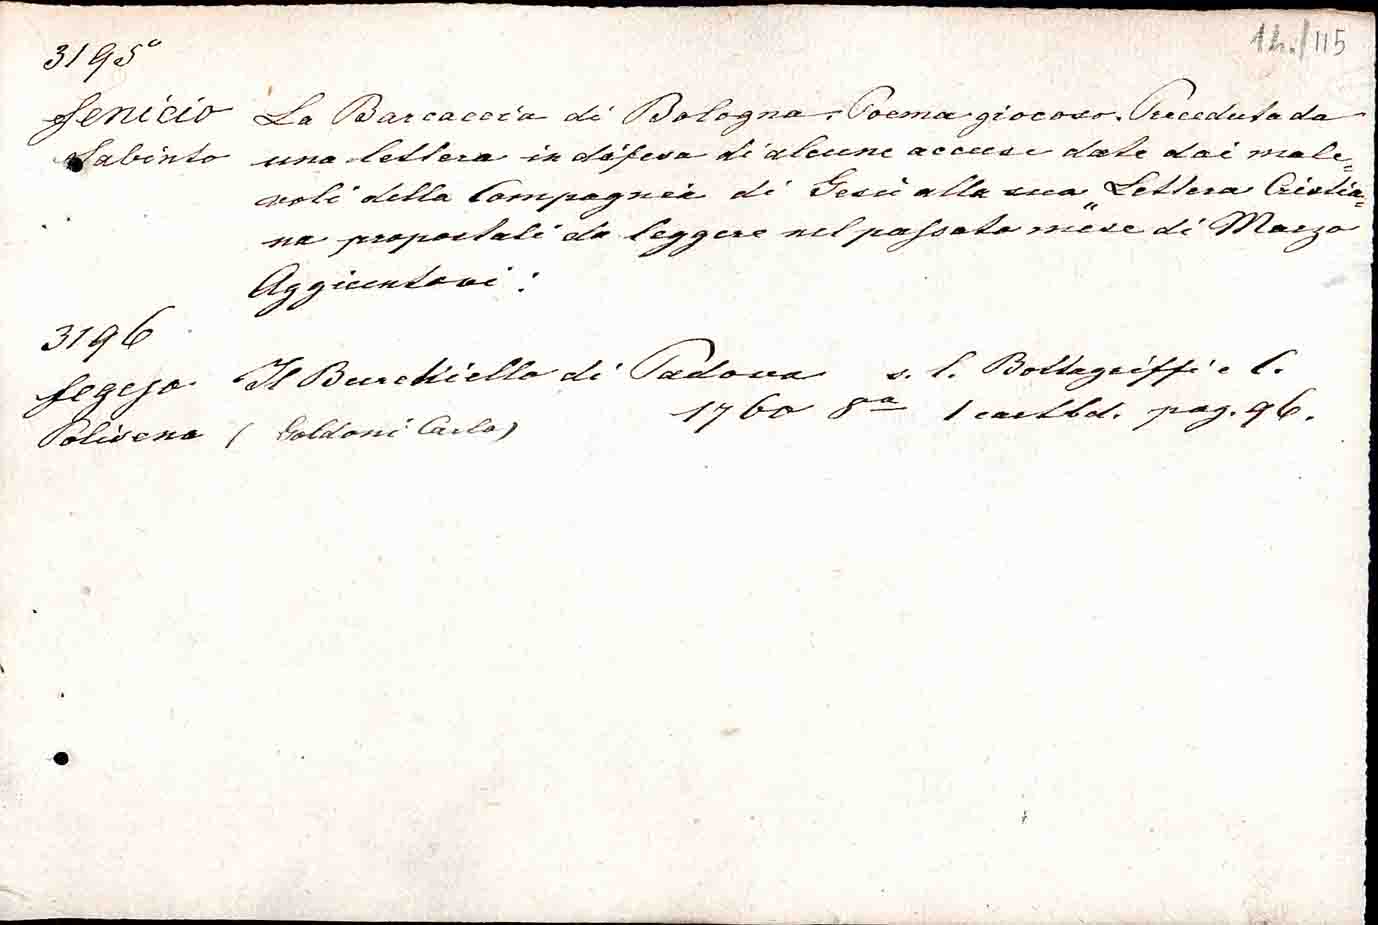 115
3195°
Fenicio La Barcaccia di Bologna. Poema giocoso. Preceduta da
Sabinto una lettera in difesa di alcune accuse date dai male=
voli della Compagnia di Gesù alla sua Lettera Cristia=
na propostali da leggere nel passato mese di Marzo
Aggiuntovi:
3196
Fegejo Il Burchiello di Padova s. l. Bottagriffi e C.
Poliseno (Goldoni Carlo) 1760 8ª 1 cart. bd. pag. 96.